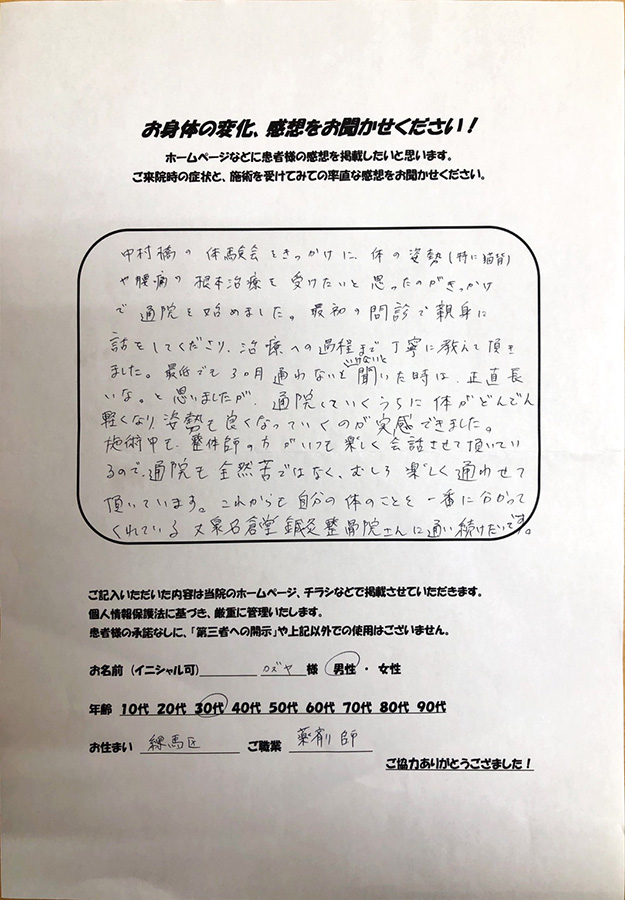 お身体の変化、感想をお聞かせください！
ホームページなどに患者様の感想を掲載したいと思います。
ご来院時の症状と、施術を受けてみての率直な感想をお聞かせください。
中村橋の体験会をきっかけに、体の姿勢(特に猫背)
や腰痛の根本治療を受けたいと思ったのがきっかけ
で通院を始めました。最初の問診で親身に
話をしてくださり、治療への過程まで丁寧に教えて頂き
ました。最低でも3ヵ月通わないといけないと聞いた時は、正直長
いな。と思いましたが、通院していくうちに体がどんどん
軽くなり、姿勢も良くなっていくのが実感できました。
施術中も、整体師の方がいつも楽しく会話させて頂いてい
るので、通院も全然苦ではなく、むしろ楽しく通わせて
頂いています。これからも自分の体のことを一番に分かって
くれている大泉名倉堂鍼灸整骨院さんに通い続けたいです。
ご記入いただいた内容は当院のホームページ、チラシなどで掲載させていただきます。
個人情報保護法に基づき、厳重に管理いたします。
患者様の承諾なしに、「第三者への開示」や上記以外での使用はございません。
お名前（イニシャル可） カズヤ 様 男性・女性
年齢 10代 20代 30代 40代 50代 60代 70代 80代 90代
お住まい 練馬区 ご職業 薬剤師
ご協力ありがとうござました！